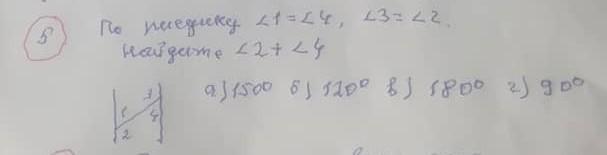 5
По рисунку ∠1=∠4, ∠3=∠2.
Найдите ∠2+∠4
а) 150° б) 120° в) 180° г) 90°
1 3
2 4